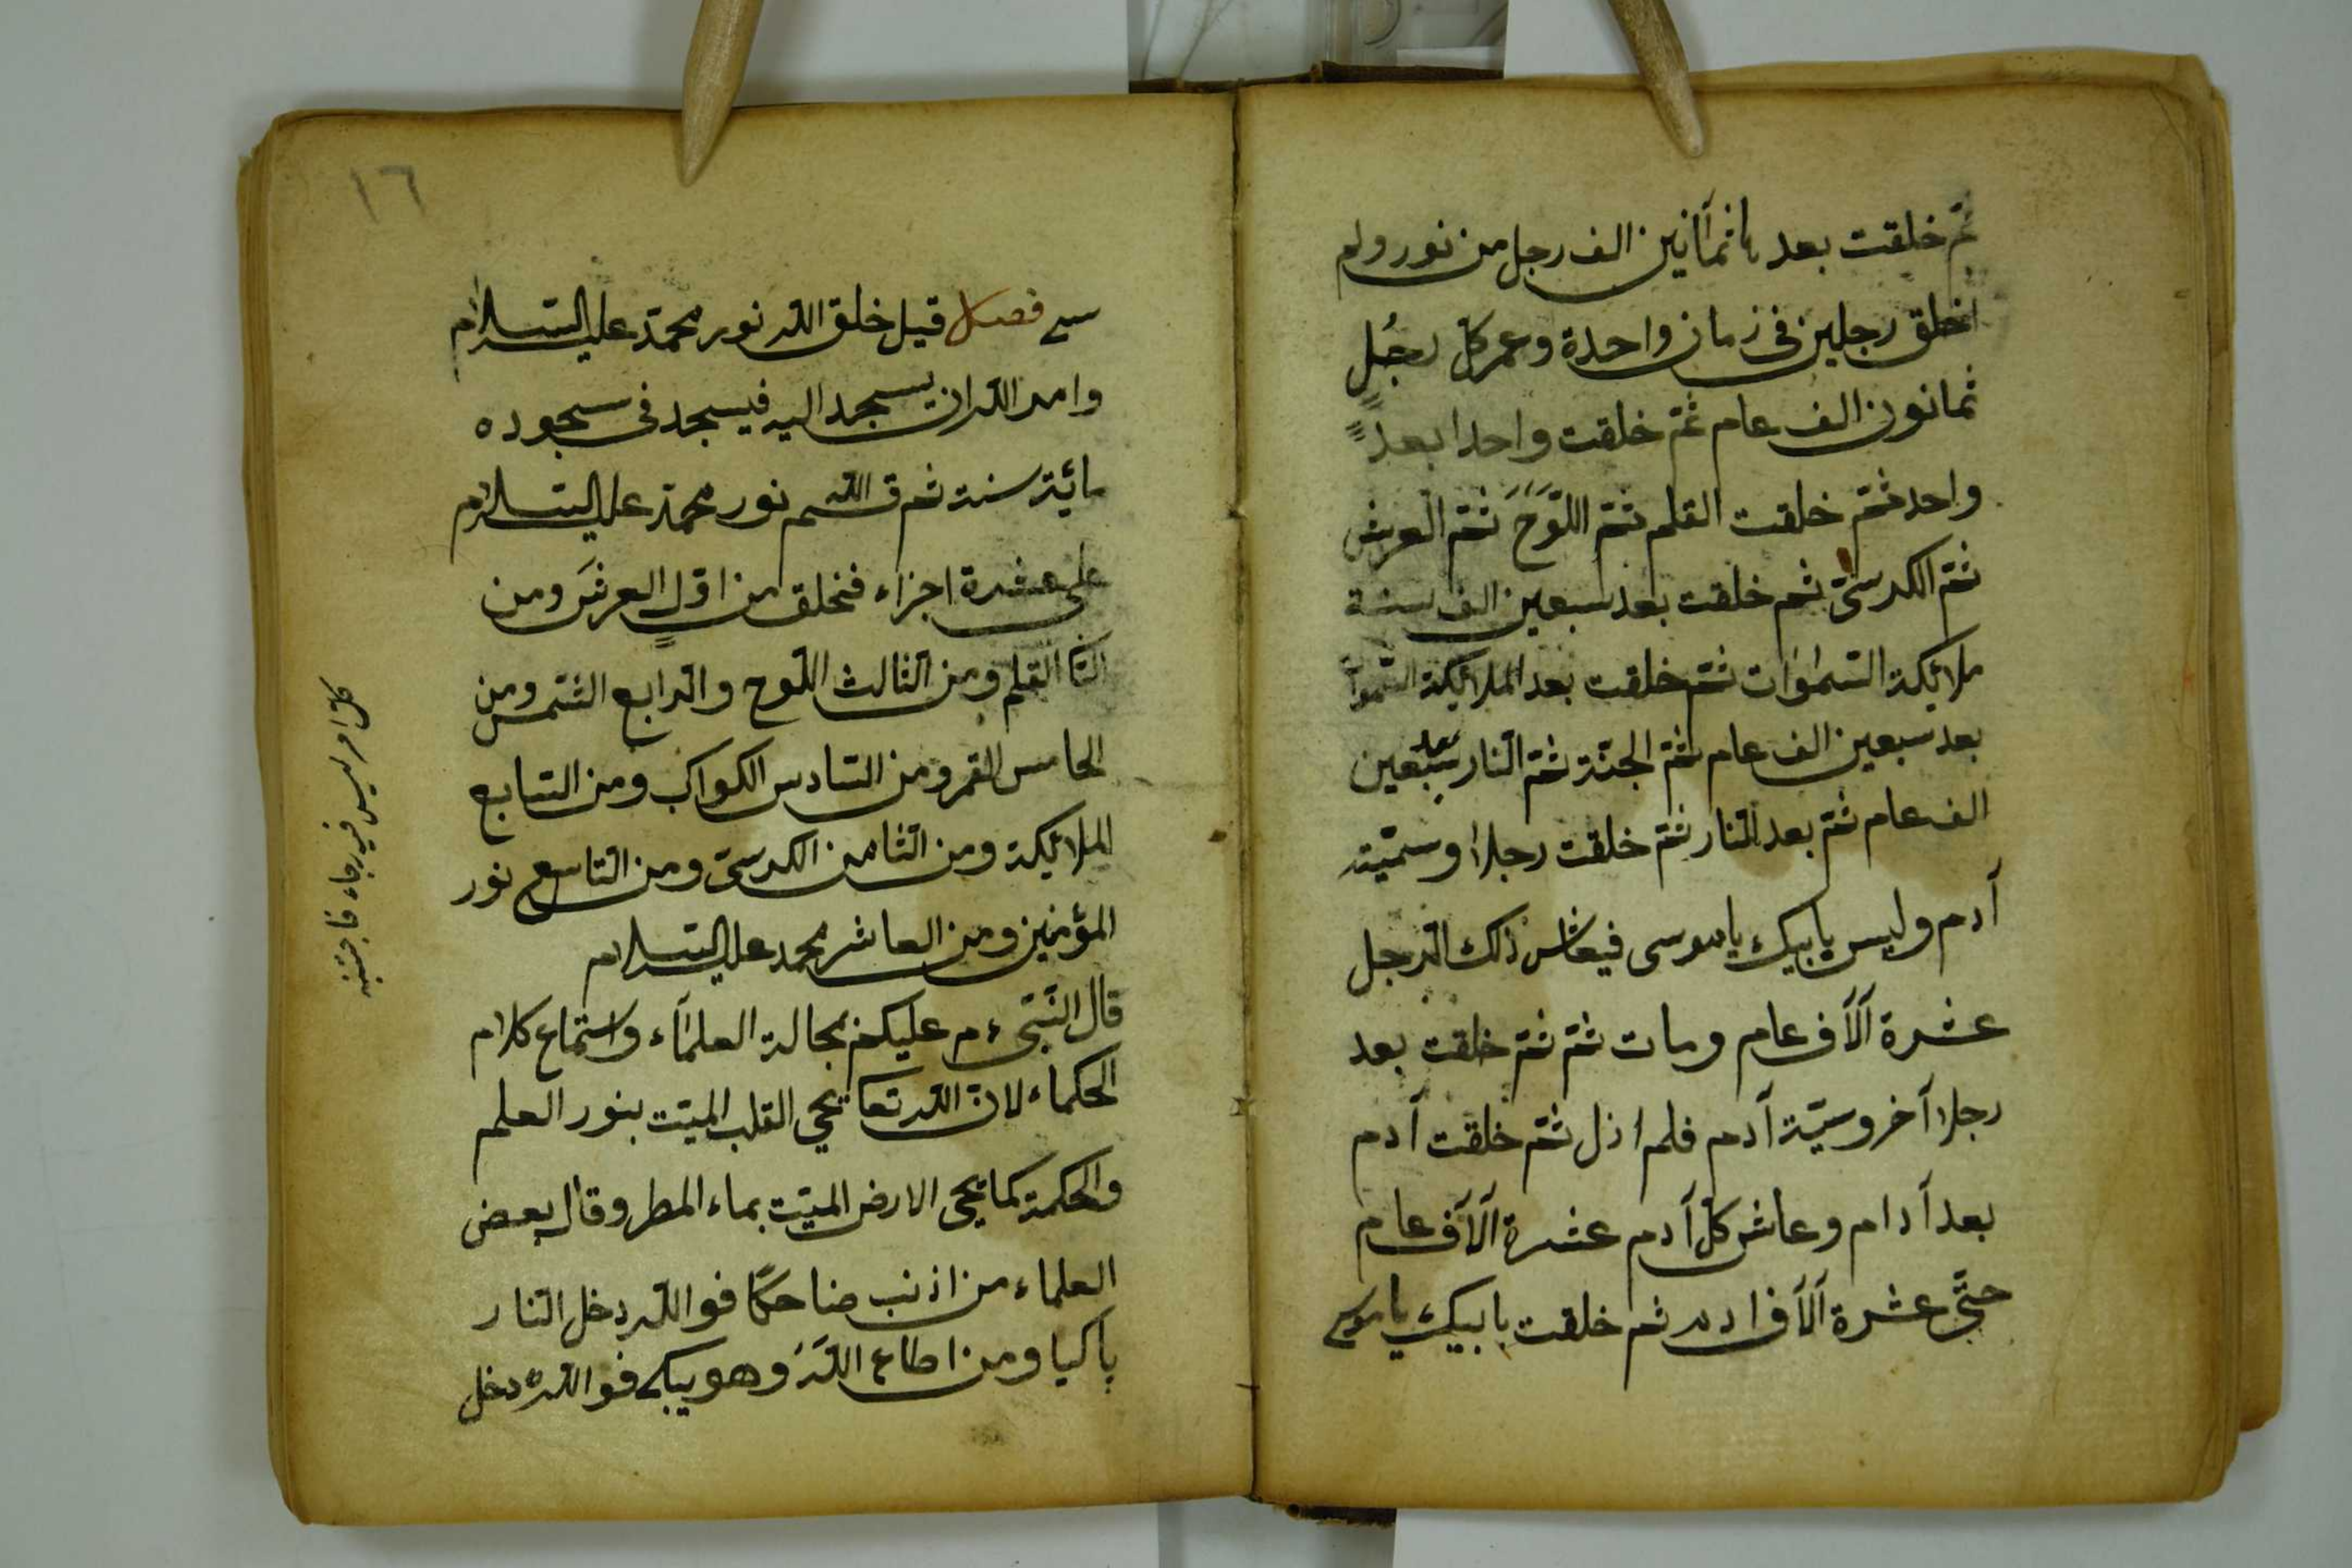 ثم خلقت بعد ثمانين الف رجل من نور ولم
اخلق رجلين في زمان واحدة وعمر كل رجُلٍ
ثمانون الف عام ثم خلقت واحدا بعد
واحد ثم خلقت القلم ثم اللوَحَ ثم العرش
ثم الكرسيّ ثم خلقت بعد سبعين الف سنة
ملائكة السموات ثم خلقت بعد الملائكة السموا
بعد سبعين الف عام ثم الجنة ثم النار بعد سبعين
الف عام ثم بعد النار ثم خلقت رجلا وسمّيته
آدم وليس بابيك ياموسى فيعاش ذلك الرجل
عشرة آلآف عام ومات ثم ثم خلقت بعد
رجلا آخر وسميّة آدم فلم ازل ثم خلقت آدم
بعد آدام وعاش كل آدم عشرة آلآف عام
حتَّى عشرة آلآف ادم ثم خلقت بابيك ياموسى
١٦
فصل قيل خلق الله نور محمّد عليه السلام
وامر الله ان يسجد اليه فيسجد في سجوده
مائية سنة ثم قسم الله نور محمّد عليه السلام
على عشرة اجزاء فخلق من اوّلٍ العرشَ ومن
الثا القلم ومن الثالث اللّوح والرابع الشمس ومن
الخامس القمر ومن السّادس الكواكب ومن السّابع
الملائكة ومن الثامن الكرسيّ ومن التاسع نور
المؤمنين ومن العاشر محمد عليه السلام
قال النّبيّ ءم عليكم بجالة العلمآء واستماع كلام
الحكماء لان الله تعا يحي القلب الميّت بنور العلم
والحكمة كما يحي الارض الميّت بماء المطر وقال بعض
العلماء من اذنب ضاحكًا فوالله دخل النار
باكيا ومن اطاع اللهَ وهو يبكي فوالله دخل
كل امر ليس فيه رجاء فاجتنبه